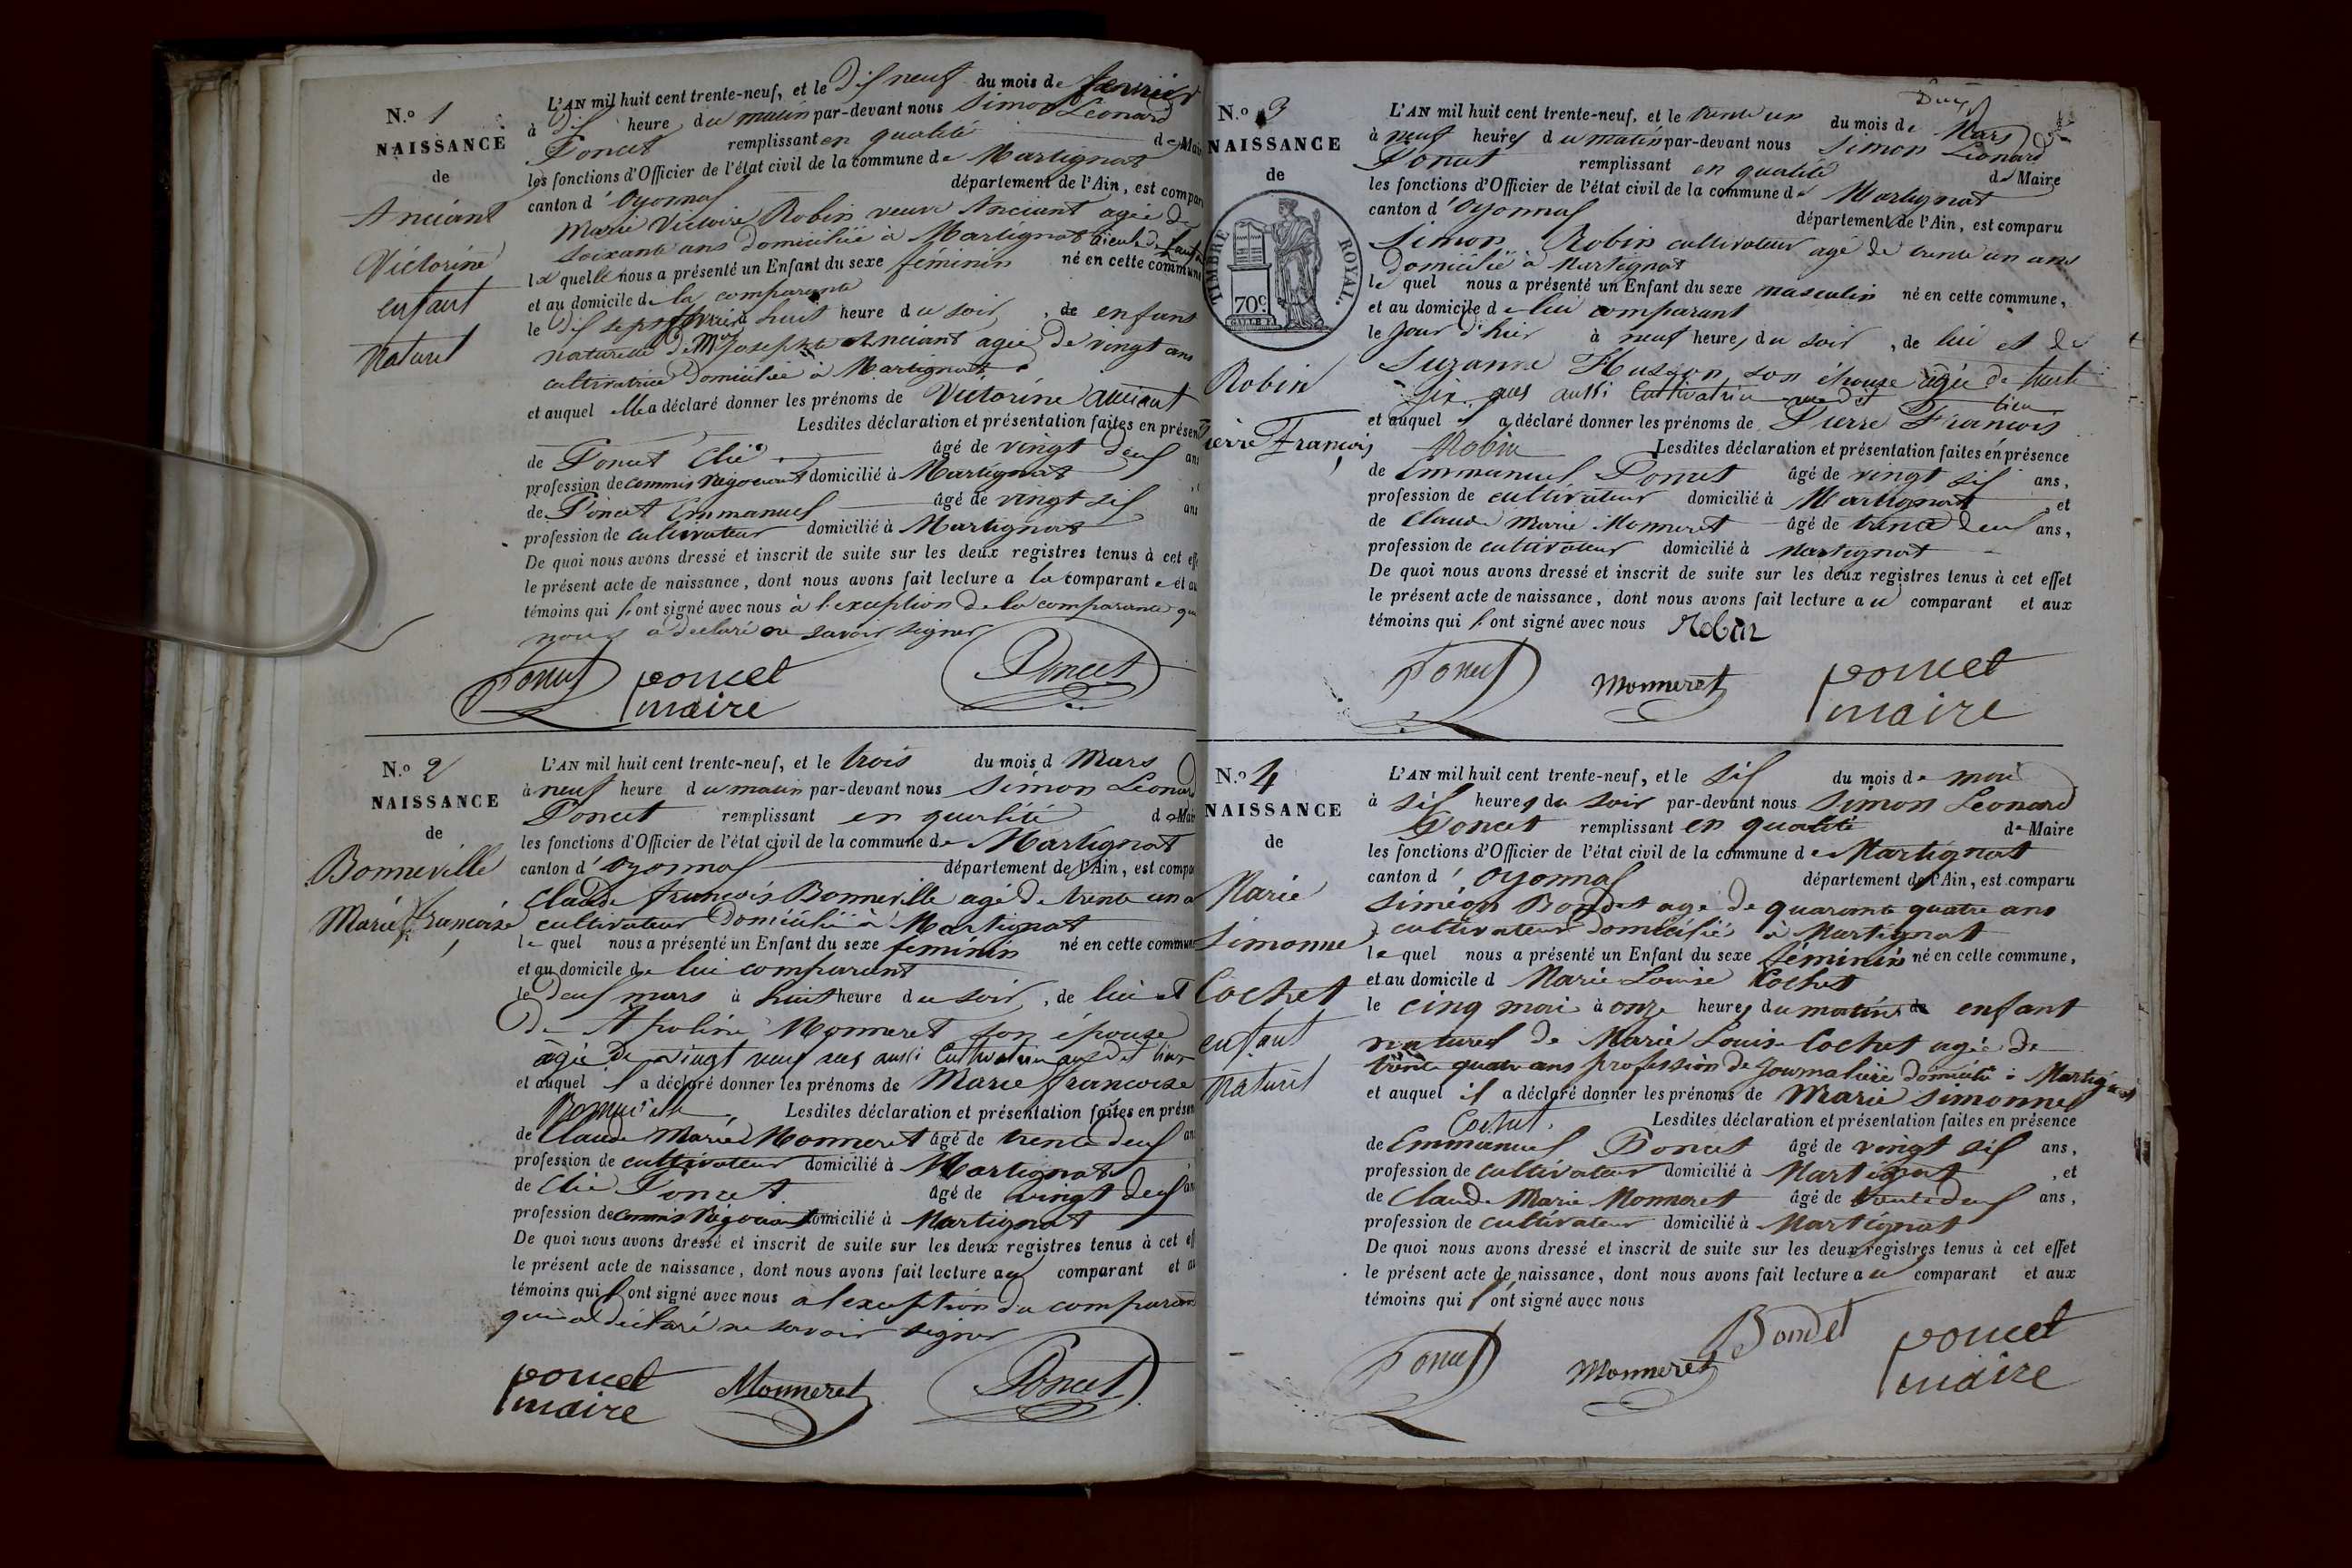 N.º 1
NAISSANCE
de
Anciant
Victorine
enfant
naturel
L'AN mil huit cent trente-neuf, et le dix neuf du mois de
à dix heure du matin par-devant nous Simon Léonard
Poncet remplissant en qualité de Mair
les fonctions d'Officier de l'état civil de la commune de Martignat
canton d'Oyonnax département de l'Ain, est compar
Marie Victoire Robin veuve Anciant agée de
soixante ans domiciliée à Martignat
la quelle nous a présenté un Enfant du sexe feminin né en cette commune
et au domicile de la comparante
le dix sept à huit heure du soir, de enfant
naturelle de Mie Josephte Anciant agée de vingt ans
cultivatrice domiciliée à Martignat
et auquel elle a déclaré donner les prénoms de Victorine anciant
Lesdites déclaration et présentation faites en présen
de Poncet Elie âgé de vingt deux ans
profession de commis négociant domicilié à Martignat
de Poncet Emmanuel âgé de vingt six ans
profession de cultivateur domicilié à Martignat
De quoi nous avons dressé et inscrit de suite sur les deux registres tenus à cet eff
le présent acte de naissance, dont nous avons fait lecture a la comparante et au
témoins qui l'ont signé avec nous à l'exception de la comparante qui
nous a declaré ne savoir signer
Poncet poncet Poncet
maire
N.º 2
NAISSANCE
de
Bonneville
Marie françoise
L'AN mil huit cent trente-neuf, et le trois du mois d Mars
à neuf heure du matin par-devant nous Simon Léonard
Poncet remplissant en qualité de Mair
les fonctions d'Officier de l'état civil de la commune de Martignat
canton d'Oyonnax département de l'Ain, est compar
Claude françois Bonneville agé de trente un a
cultivateur domicilié à Martignat
le quel nous a présenté un Enfant du sexe feminin né en cette commune
et au domicile de lui comparant
le deux mars à huit heure du soir, de lui et
de Apoline Monneret son épouse
agée de vingt neuf ans aussi cultivatrice au dit lieu
et auquel il a déclaré donner les prénoms de Marie francoise
Bonneville Lesdites déclaration et présentation faites en présen
de Claude Marie Monneret âgé de trente deux an
profession de cultivateur domicilié à Martignat
de Elie Poncet âgé de vingt deux an
profession de commis Négociant domicilié à Martignat
De quoi nous avons dressé et inscrit de suite sur les deux registres tenus à cet eff
le présent acte de naissance, dont nous avons fait lecture au comparant et au
témoins qui l'ont signé avec nous a l'exception du comparant
qui a déclaré ne savoir signer
poncet Monneret Poncet
maire
N.º 3
NAISSANCE
de
TIMBRE ROYAL.
70c.
Robin
Pierre François
L'AN mil huit cent trente-neuf, et le trente un du mois de Mars
à neuf heures du matin par-devant nous Simon Léonard
Poncet remplissant en qualité de Maire
les fonctions d'Officier de l'état civil de la commune de Martignat
canton d'Oyonnax département de l'Ain, est comparu
Simon Robin cultivateur agé de trente un ans
domicilié à Martignat
le quel nous a présenté un Enfant du sexe masculin né en cette commune,
et au domicile de lui comparant
le jour d'hier à neuf heures du soir, de lui et de
Suzanne Husson son épouse agée de trente
six ans aussi cultivatrice au dit lieu
et auquel il a déclaré donner les prénoms de Pierre François
Robin Lesdites déclaration et présentation faites en présence
de Emmanuel Poncet âgé de vingt six ans,
profession de cultivateur domicilié à Martignat, et
de Claude Marie Monneret âgé de trente deux ans,
profession de cultivateur domicilié à Martignat
De quoi nous avons dressé et inscrit de suite sur les deux registres tenus à cet effet
le présent acte de naissance, dont nous avons fait lecture au comparant et aux
témoins qui l'ont signé avec nous Robin
Poncet Monneret poncet
maire
N.º 4
NAISSANCE
de
Marie
Simonne
Cochet
enfant
naturel
L'AN mil huit cent trente-neuf, et le six du mois de mai
à six heures du soir par-devant nous Simon Léonard
Poncet remplissant en qualité de Maire
les fonctions d'Officier de l'état civil de la commune de Martignat
canton d'Oyonnax département de l'Ain, est comparu
Siméon Bondet agé de quarante quatre ans
cultivateur domicilié à Martignat
le quel nous a présenté un Enfant du sexe féminin né en cette commune,
et au domicile d Marie Louise Cochet
le cinq mai à onze heures du matin de enfant
naturel de Marie Louise Cochet agée de
trente quatre ans profession de journalière domiciliée à Martignat
et auquel il a déclaré donner les prénoms de Marie Simonne
Cochet. Lesdites déclaration et présentation faites en présence
de Emmanuel Poncet âgé de vingt six ans,
profession de cultivateur domicilié à Martignat, et
de Claude Marie Monneret âgé de trente deux ans,
profession de cultivateur domicilié à Martignat
De quoi nous avons dressé et inscrit de suite sur les deux registres tenus à cet effet
le présent acte de naissance, dont nous avons fait lecture au comparant et aux
témoins qui l'ont signé avec nous
Poncet Monneret Bondet poncet
maire